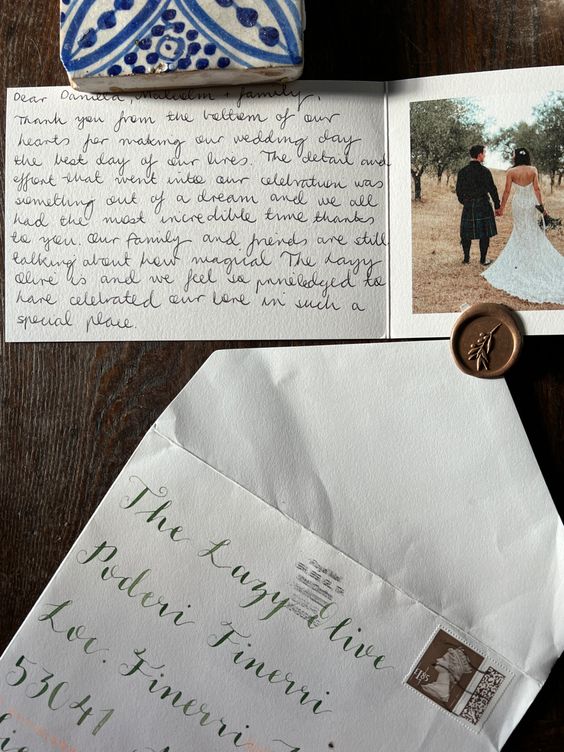 Dear Daniela, Malcolm + family,
Thank you from the bottom of our
hearts for making our wedding day
the best day of our lives. The detail and
effort that went into our celebration was
something out of a dream and we all
had the most incredible time thanks
to you. Our family and friends are still
talking about how magical The Lazy
Olive is and we feel so priveledged to
have celebrated our love in such a
special place.
The Lazy Olive
Poderi Finerri
Loc. Finerri
53041
£1.85